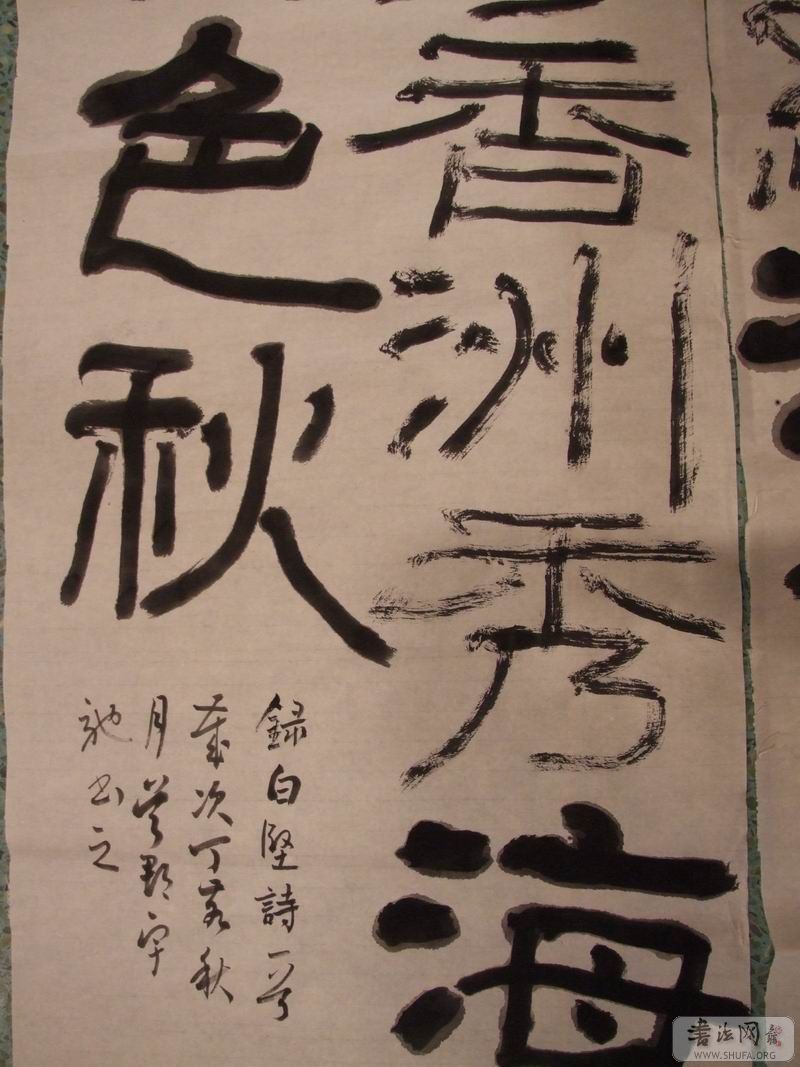 香洲秀海
色秋
録白堅詩一首
歲次丁亥秋
月
馳書之
書法网
WWW.SHUFA.ORG